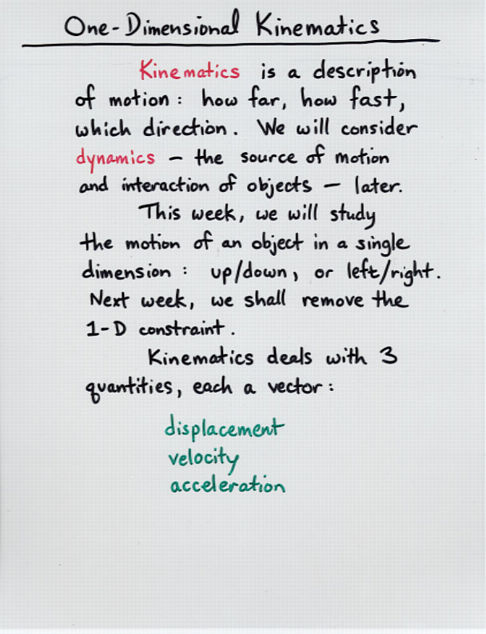 One-Dimensional Kinematics
Kinematics is a description
of motion: how far, how fast,
which direction. We will consider
dynamics – the source of motion
and interaction of objects – later.
This week, we will study
the motion of an object in a single
dimension: up/down, or left/right.
Next week, we shall remove the
1-D constraint.
Kinematics deals with 3
quantities, each a vector:
displacement
velocity
acceleration